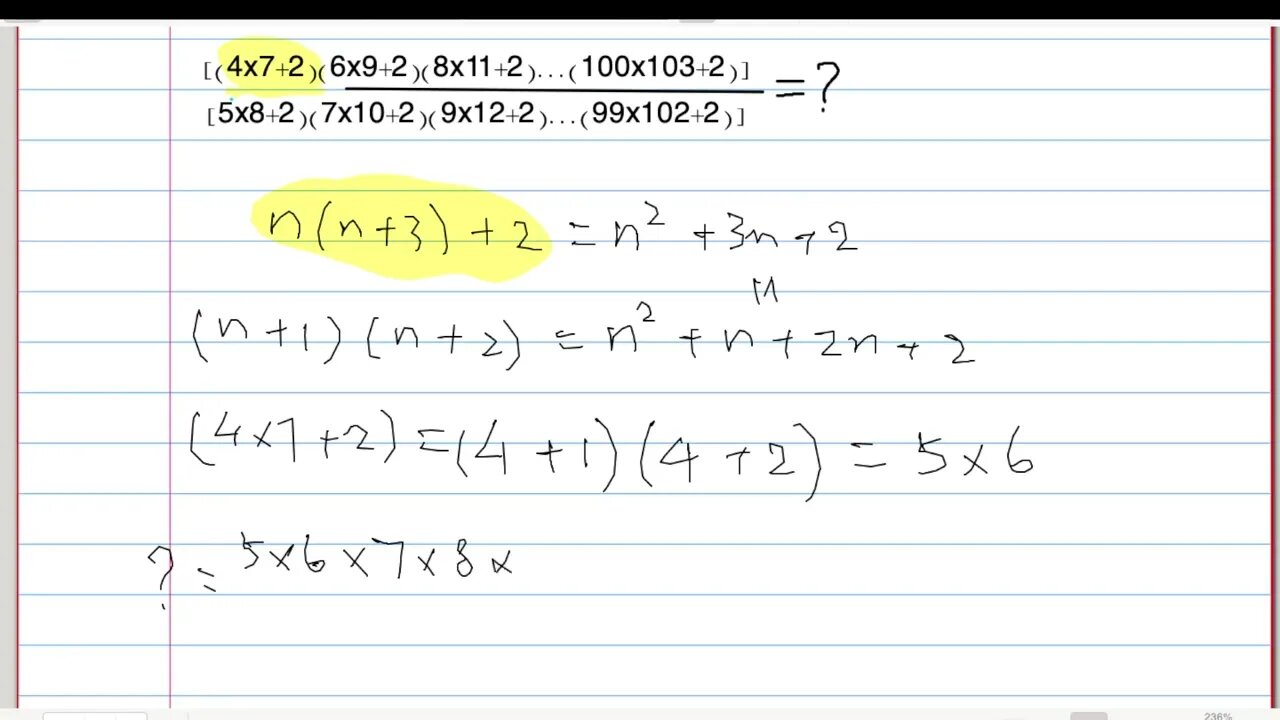 [(4x7+2)(6x9+2)(8x11+2)...(100x103+2)]
= ?
[5x8+2)(7x10+2)(9x12+2)...(99x102+2)]
n(n+3)+2 = n² + 3n + 2
(n+1)(n+2) = n² + n + 2n + 2
(4x7+2) = (4+1)(4+2) = 5x6
? = 5x6x7x8x
236%